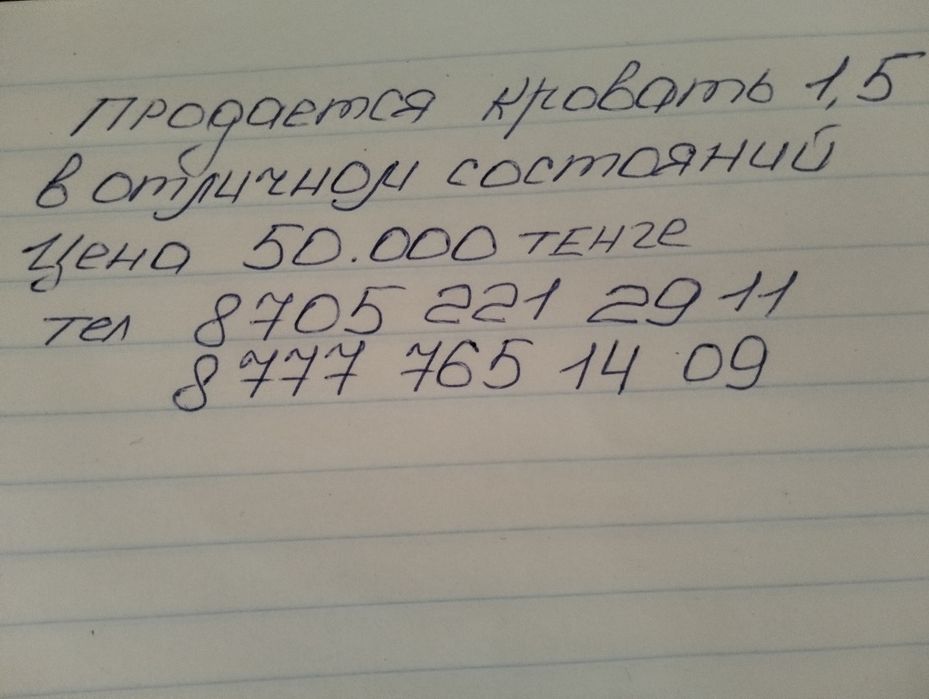 Продается кровать 1,5
в отличном состояний
Цена 50.000 тенге
тел 8705 221 29 11
8777 765 14 09